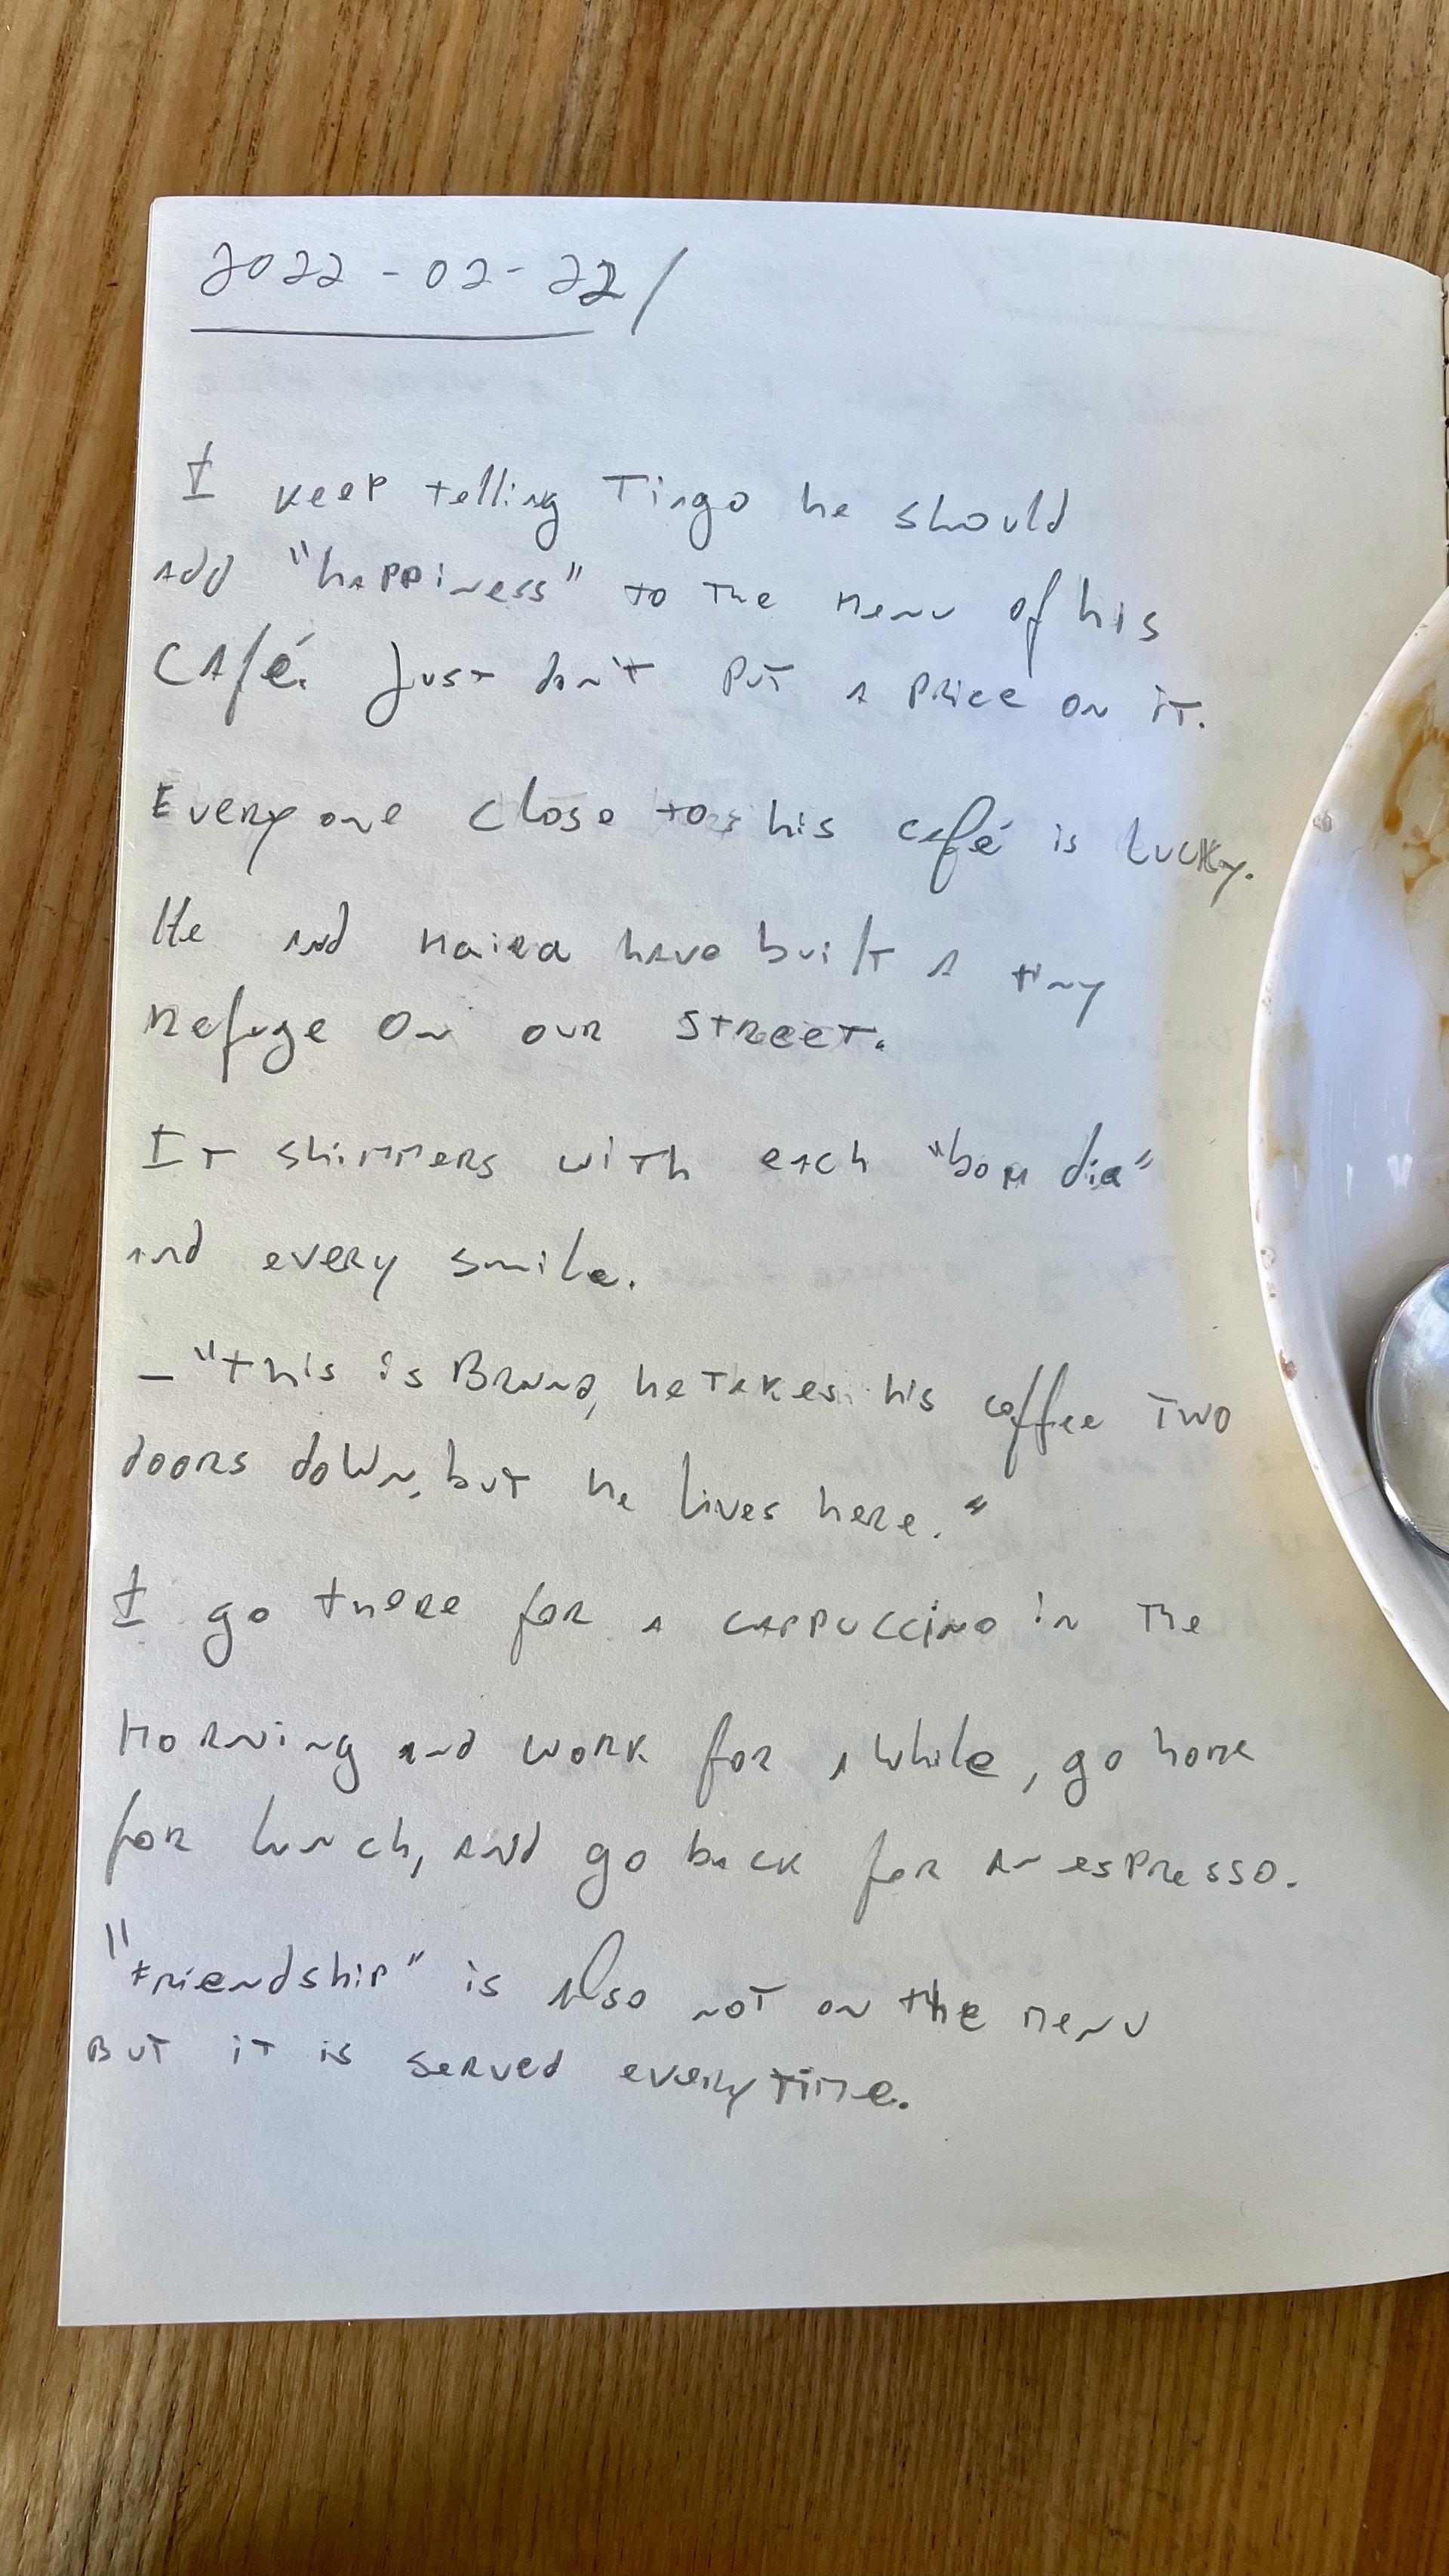 2022-02-22/
I keep telling Tiago he should
add "happiness" to the menu of his
café. Just don't put a price on it.
Everyone close to his café is lucky.
He and Maira have built a tiny
refuge on our street.
It shimmers with each "bom dia"
and every smile.
- "This is Bruno, he takes his coffee two
doors down, but he lives here."
I go there for a cappuccino in the
morning and work for a while, go home
for lunch, and go back for an espresso.
"Friendship" is also not on the menu
but it is served everytime.